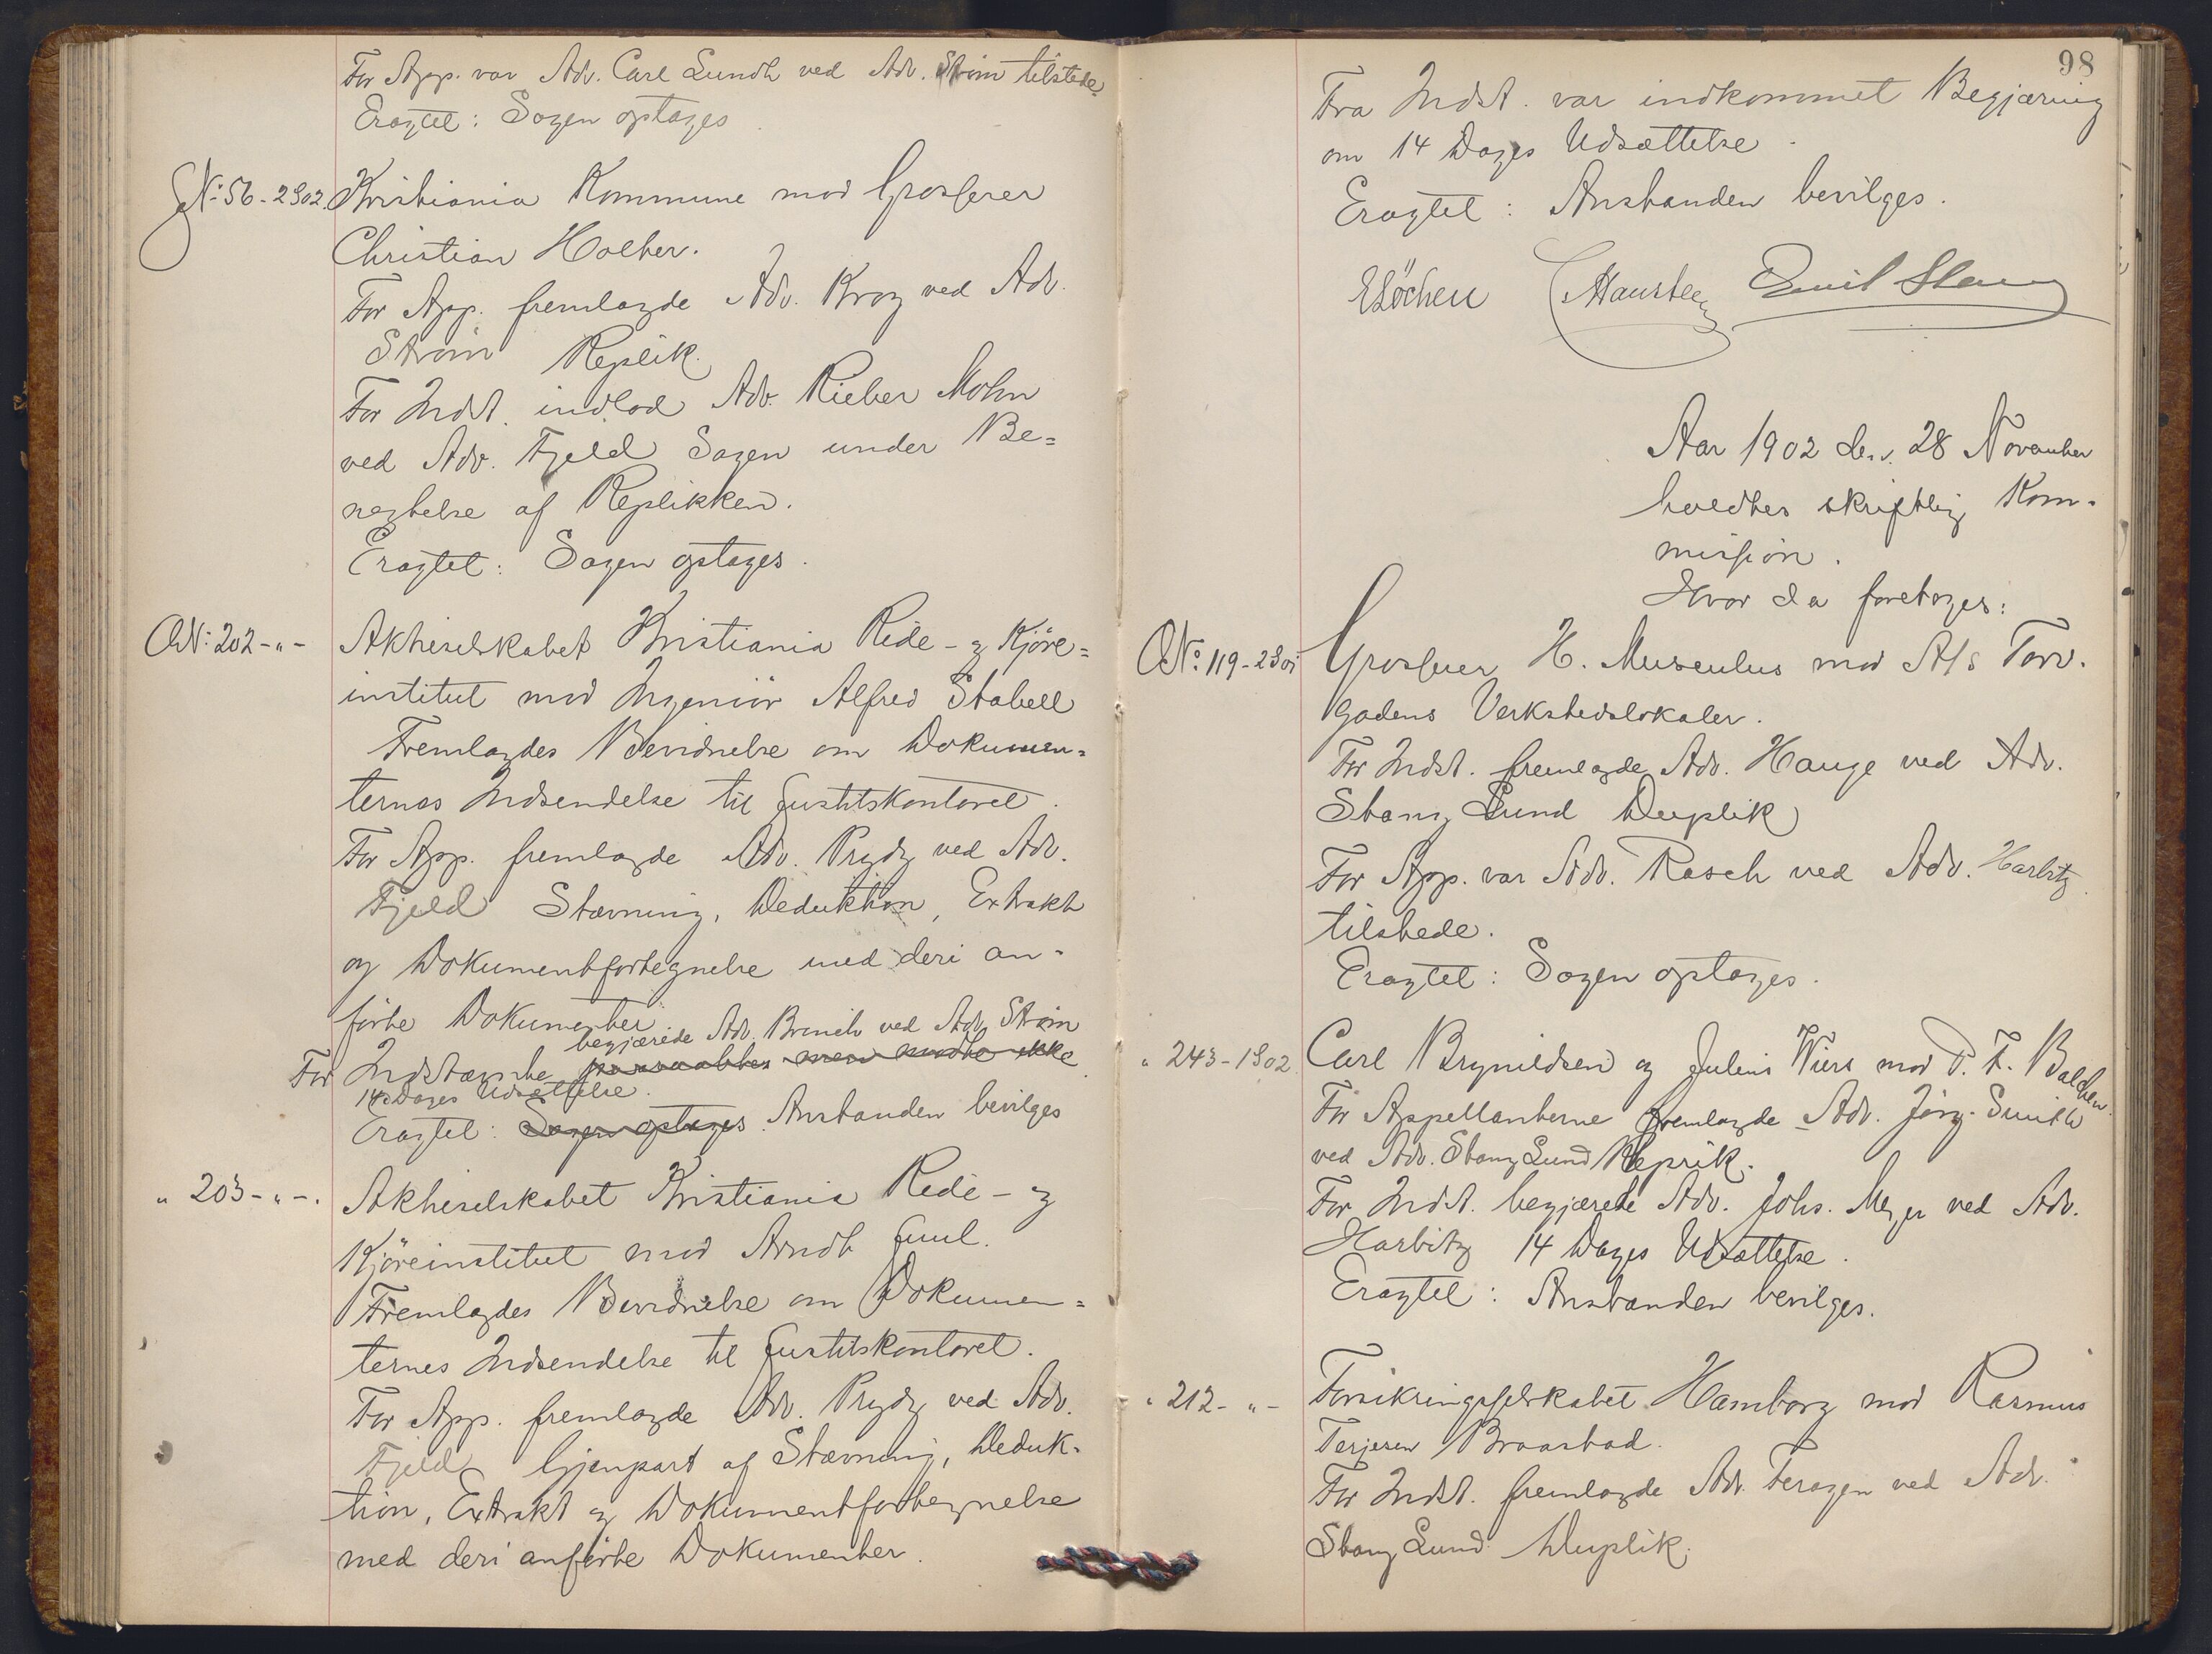 For App. var Adv. Carl Lundh ved Adv. Strøm tilstede
Eragtet: Sagen optages
No 56-2902. Kristiania Kommune mod Grosserer
Christian Holter.
For App. fremlagde Adv. Krag ved Adv.
Strøm Replik
For Indst. indlod Adv. Rieber Mohn
ved Adv. Fjeld Sagen under Be=
nægtelse af Replikken.
Eragtet: Sagen optages.
No: 202-"- Aktieselskabet Kristiania Ride- og Kjöre=
institut mod Ingeniör Alfred Stabell
Fremlagdes Bevidnelse om Dokumen=
ternes Indsendelse til Justitskontoret.
For App. fremlagde Adv. Prydz ved Adv.
Fjeld Stævning, Deduktion, Extrakt
og Dokumentfortegnelse med deri an-
førte Dokumenter
begjærede Adv. Bruch ved Adv. Strøm
For Indstævnte paaraabtes men mødte ikke
14 Dages Udsættelse.
Eragtet: Sagen optages. Anstanden bevilges
" 203-"-. Aktieselskabet Kristiania Ride- og
Kjöreinstitut mod Arndt Juul.
Fremlagdes Bevidnelse om Dokumen=
ternes Indsendelse til Justitskontoret.
For App. fremlagde Adv. Prydz ved Adv.
Fjeld Gjenpart af Stævning, Deduk-
tion, Extrakt og Dokumentfortegnelse
med deri anførte Dokumenter.
98
Fra Indst. var indkommet Begjæring
om 14 Dages Udsættelse.
Eragtet: Anstanden bevilges.
ELöchen Hansteen Emil Stang
Aar 1902 den 28 November
holdtes skriftlig Kom-
mission.
Hvor da foretoges:
No: 119-2901 Grosserer H. Musculus mod A/s Torv.
gadens Verkstedslokaler.
For Indst. fremlagde Adv. Hauge ved Adv.
Stang Lund Duplik
For App. var Adv. Rasch ved Adv. Harbitz
tilstede.
Eragtet: Sagen optages.
" 243-1902. Carl Brynildsen og Julius Wiers mod P. F. Balchen.
For Appellanterne fremlagde Adv. Jörg. Smith
ved Adv. Stang Lund Replik.
For Indst. begjærede Adv. Johs. Meyer ved Adv.
Harbitz 14 Dages Udsættelse.
Eragtet: Anstanden bevilges.
" 212-"- Forsikringsselskabet Hamborg mod Rasmus
Terjesen Braastad.
For Indst. fremlagde Adv. Feragen ved Adv.
Stang Lund Duplik.